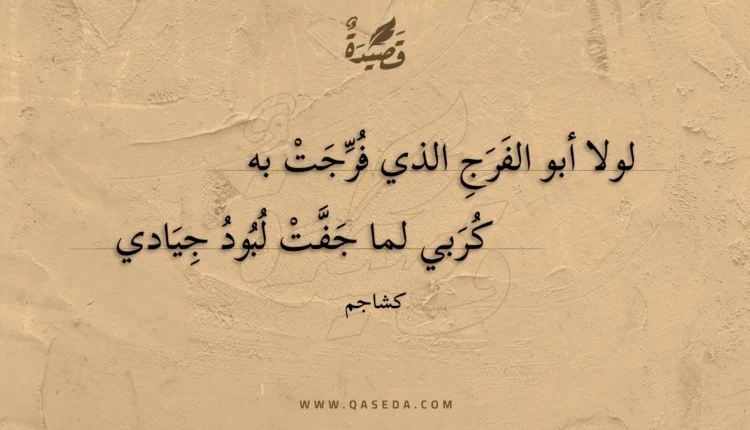 قَصِيْدَةٌ
لولا أبو الفَرَجِ الذي فُرِّجَتْ به
كُرَبي لما جَفَّتْ لُبُودُ جِيَادي
كشاجم
WWW.QASEDA.COM